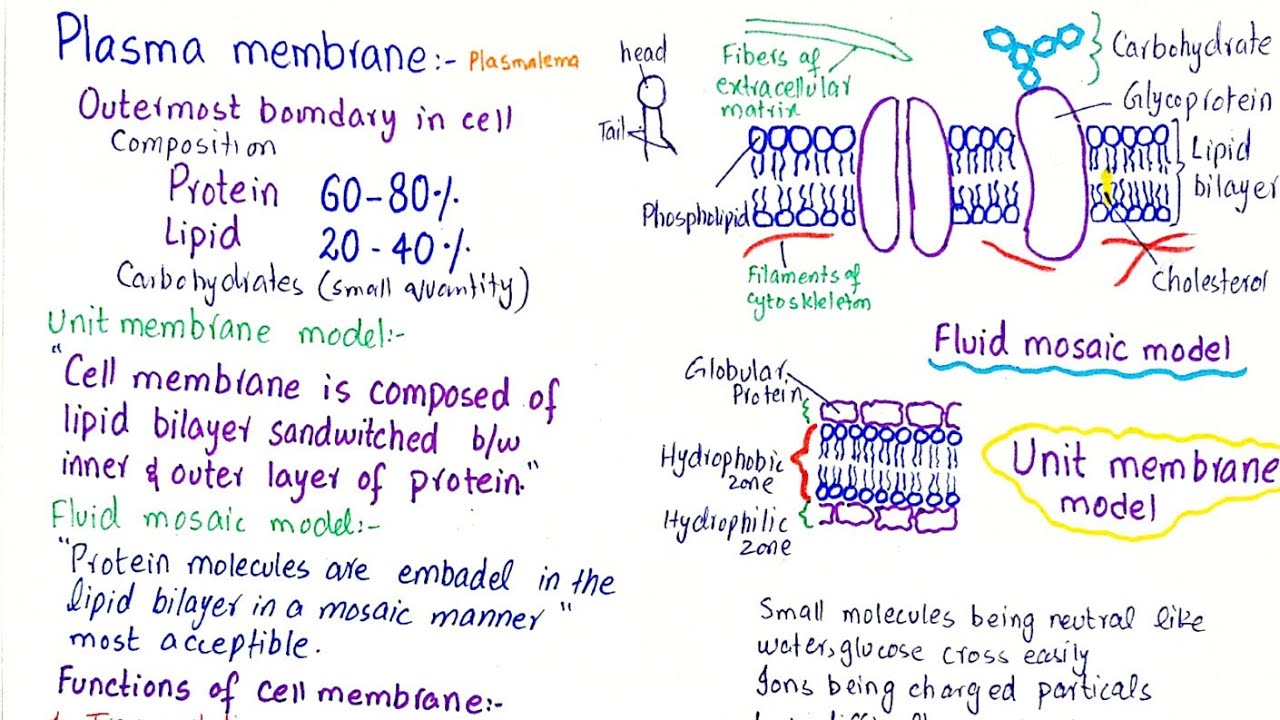 Plasma membrane:- Plasmalema
Outermost boundary in cell
Composition
Protein 60-80%
Lipid 20-40%
Carbohydrates (small quantity)
Unit membrane model:-
"Cell membrane is composed of
lipid bilayer sandwitched b/w
inner & outer layer of protein."
Fluid mosaic model:-
"Protein molecules are embadel in the
lipid bilayer in a mosaic manner"
most acceptible.
Functions of cell membrane:-
head
Tail
Fibers of
extracellular
matrix
Carbohydrate
Glycoprotein
Lipid
bilayer
Phospholipid
Filaments of
cytoskleleton
Cholesterol
Fluid mosaic model
Globular
Protein
Hydrophobic
zone
Hydrophilic
zone
Unit membrane
model
Small molecules being neutral like
water, glucose cross easily
Ions being charged particals